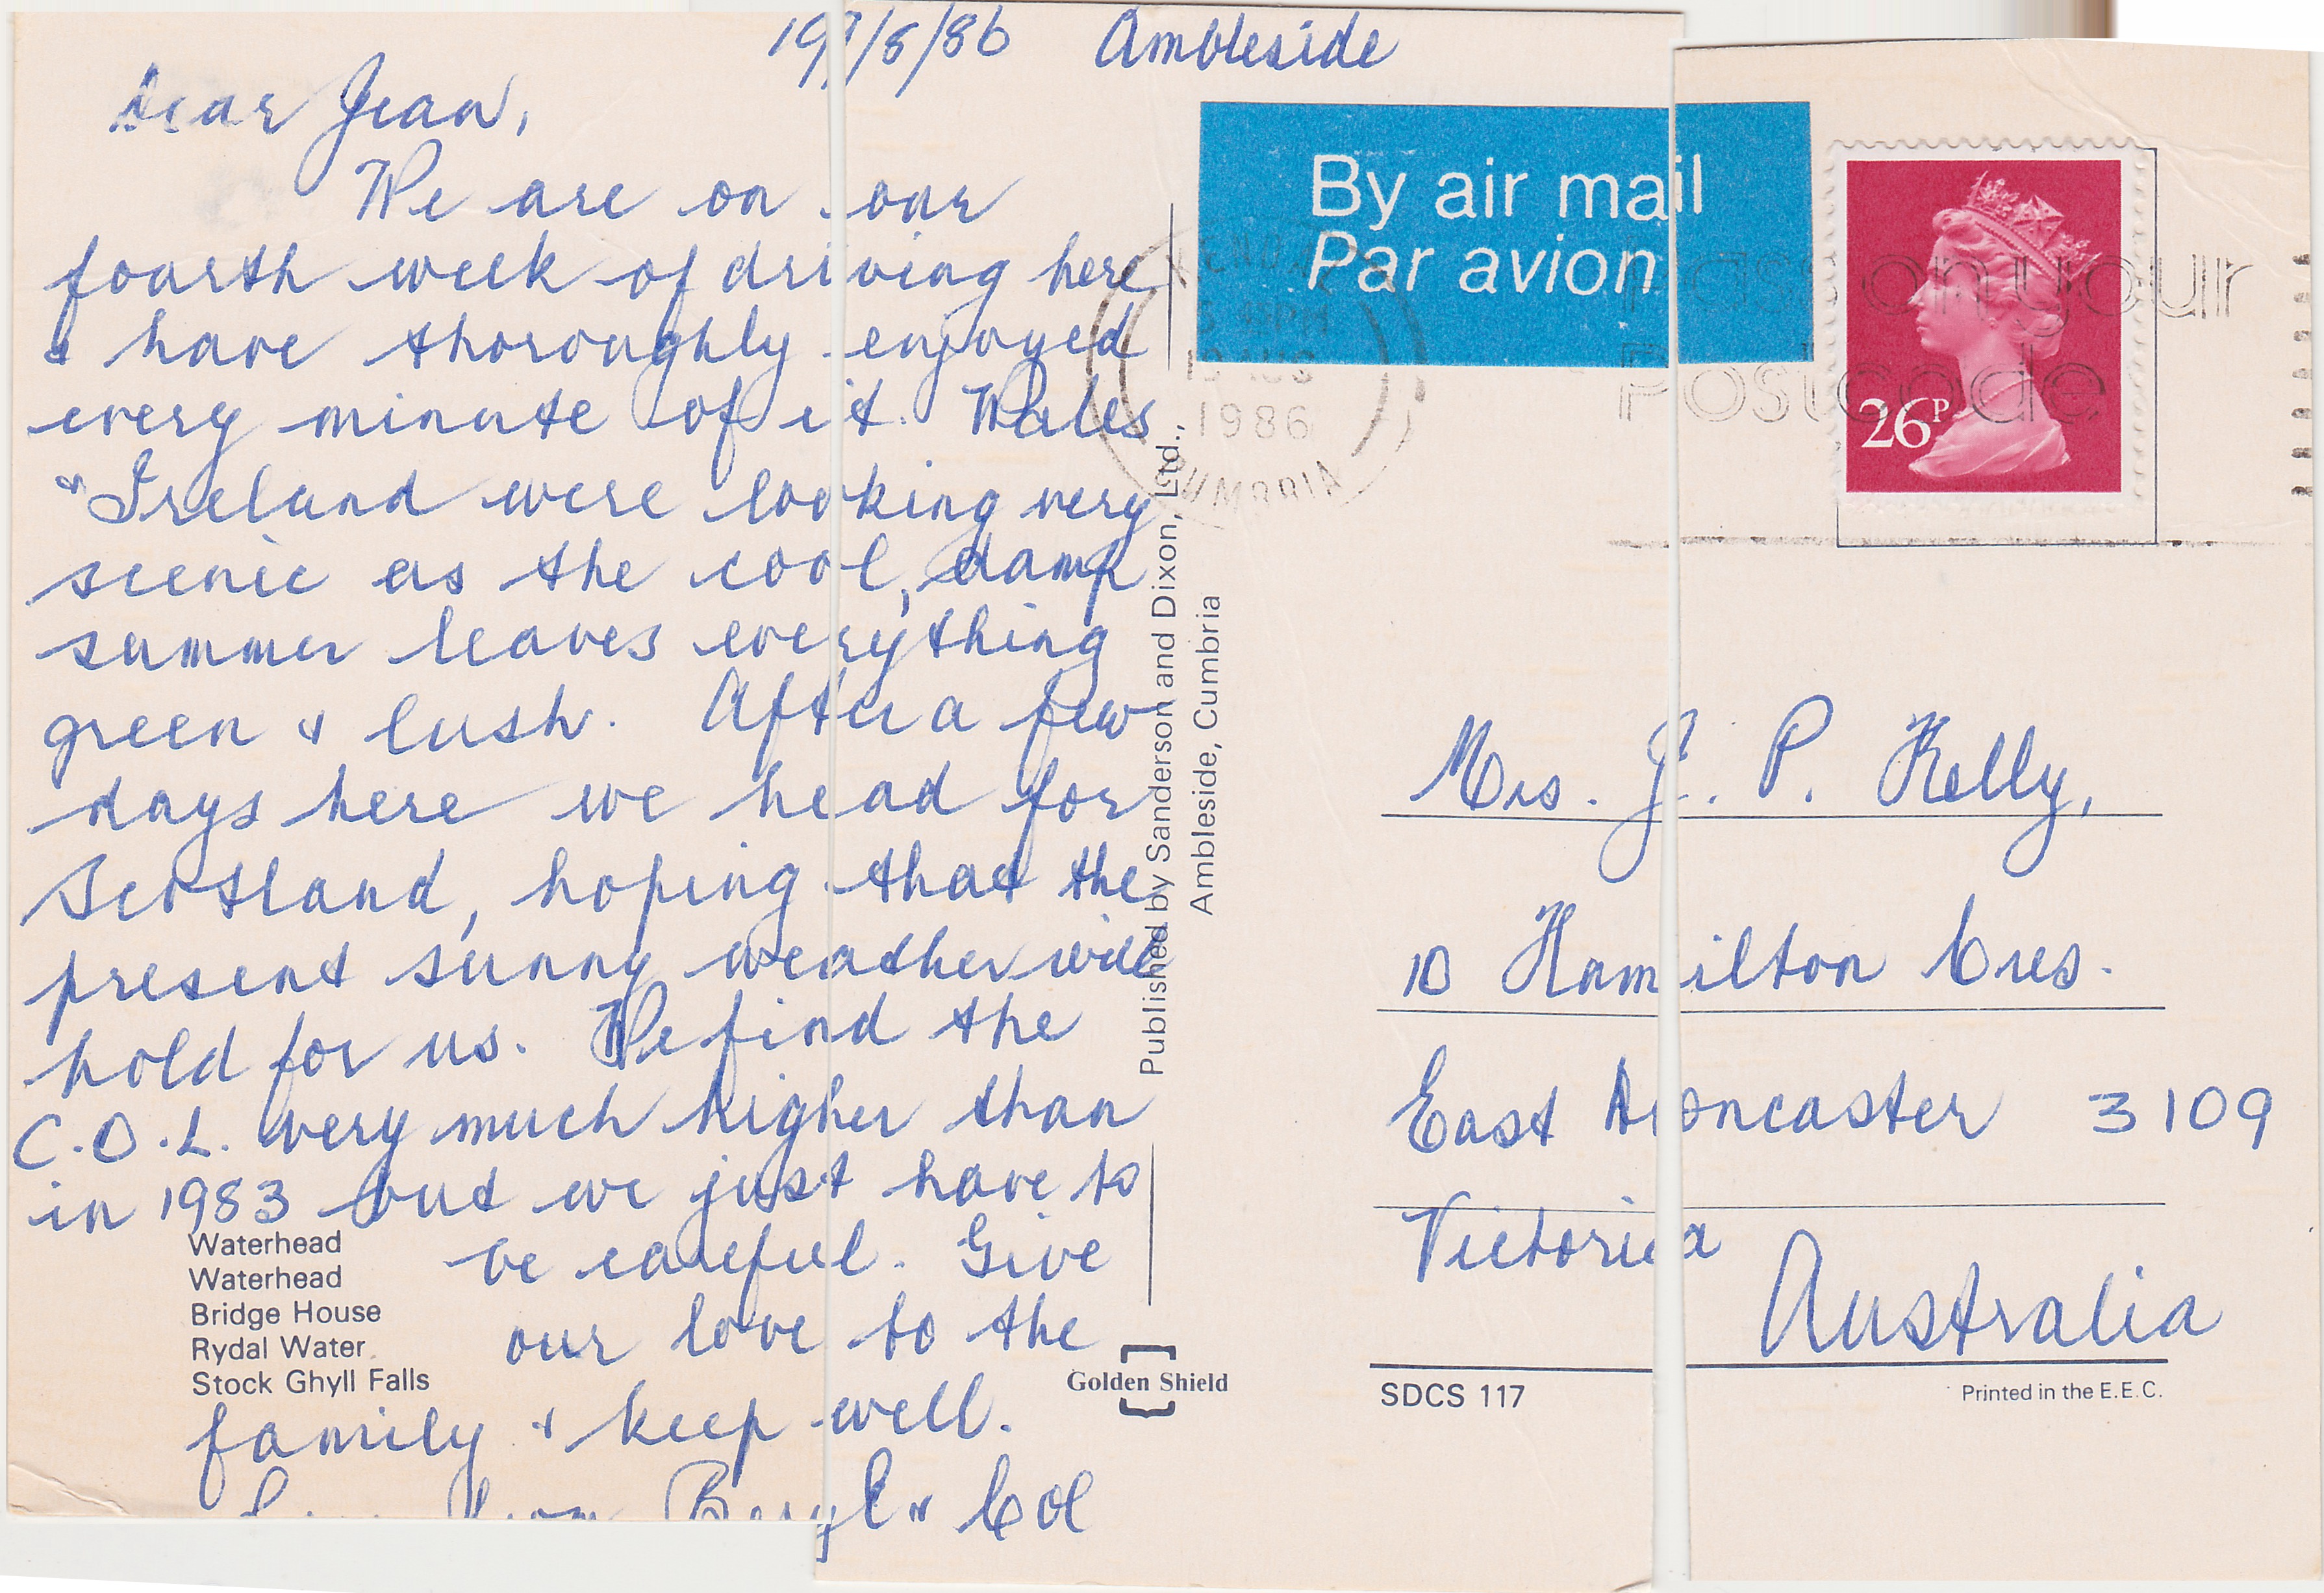 19/8/86 Ambleside
Dear Jean,
We are on our
fourth week of driving here
& have thoroughly enjoyed
every minute of it. Wales
& Ireland were looking very
scenic as the cool, damp
summer leaves everything
green & lush. After a few
days here we head for
Scotland, hoping that the
present sunny weather will
hold for us. We find the
C.O.L. very much higher than
in 1983 but we just have to
be careful. Give
our love to the
family & keep well.
Love from Beryl & Col
Waterhead
Waterhead
Bridge House
Rydal Water
Stock Ghyll Falls
Published by Sanderson and Dixon, Ltd.,
Ambleside, Cumbria
Golden Shield
By air mail
Par avion
PM
19 AUG
1986
CUMBRIA
Pass on your
Postcode
26P
Mrs. J. P. Kelly,
10 Hamilton Cres.
East Doncaster 3109
Victoria
Australia
SDCS 117
Printed in the E.E.C.